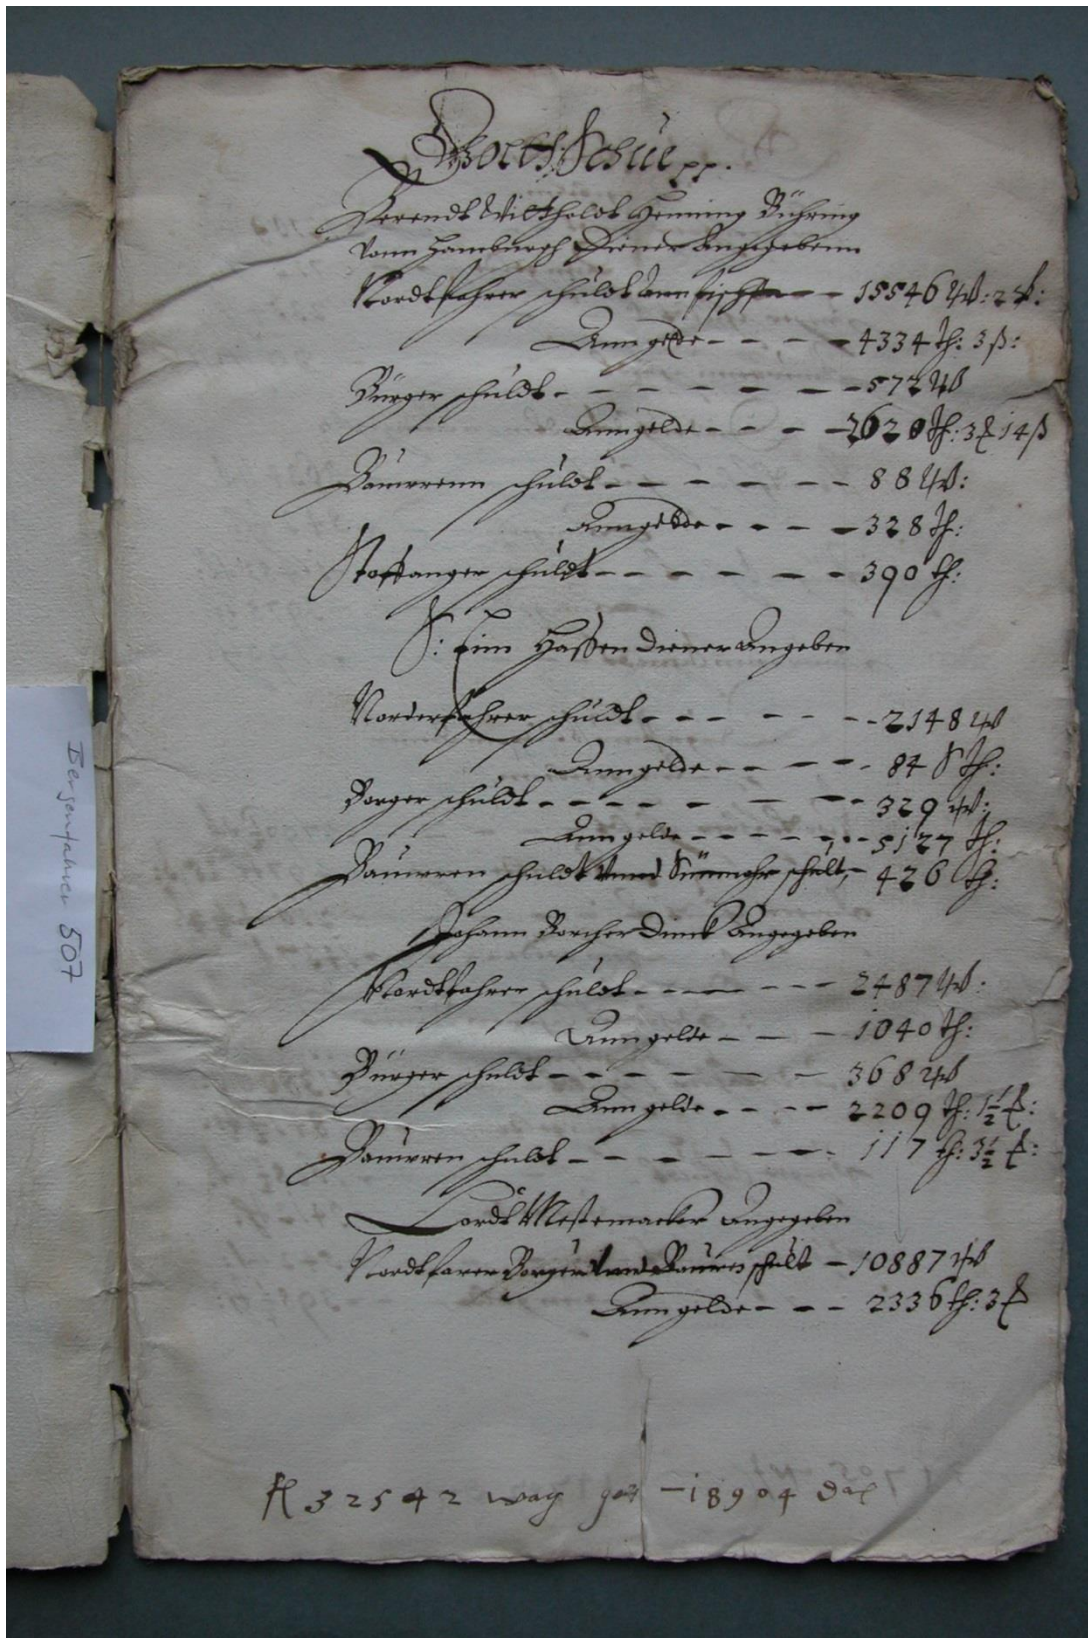 Berendt Wiltholdt Henning Bühring
vonn Hamburgh Diener Anngegebenn
Nordtfahrer schuldt ann fisch 15546 W: 2
Ann gelde 4334 th: 3 ß:
Bürger schuldt 572 W
Ann gelde 2620 th: 3 14 ß
Bauwrenn schuldt 88 W:
Ann gelde 328 th:
Staffanger schuldt 390 th:
S: Hassen diener Angeben
Norderfahrer schuldt 2148 W
Ann gelde 84 th:
Borger schuldt 329 W:
Ann gelde 5127 th:
Bauwren schuldt vnnd schult 426 th:
Johann Borcherdinck Angegeben
Nordtfahrer schuldt 2487 W:
Ann gelde 1040 th:
Bürger schuldt 368 W
Ann gelde 2209 th: 1½
Bauwren schuldt 117 th: 3½
Cordt Mestemacker Angegeben
Nordtfarer Borger vnnd Bauren schult 10887 W
Ann gelde 2336 th: 3
32542 wag 18904 dal
Bergenfahrer 507